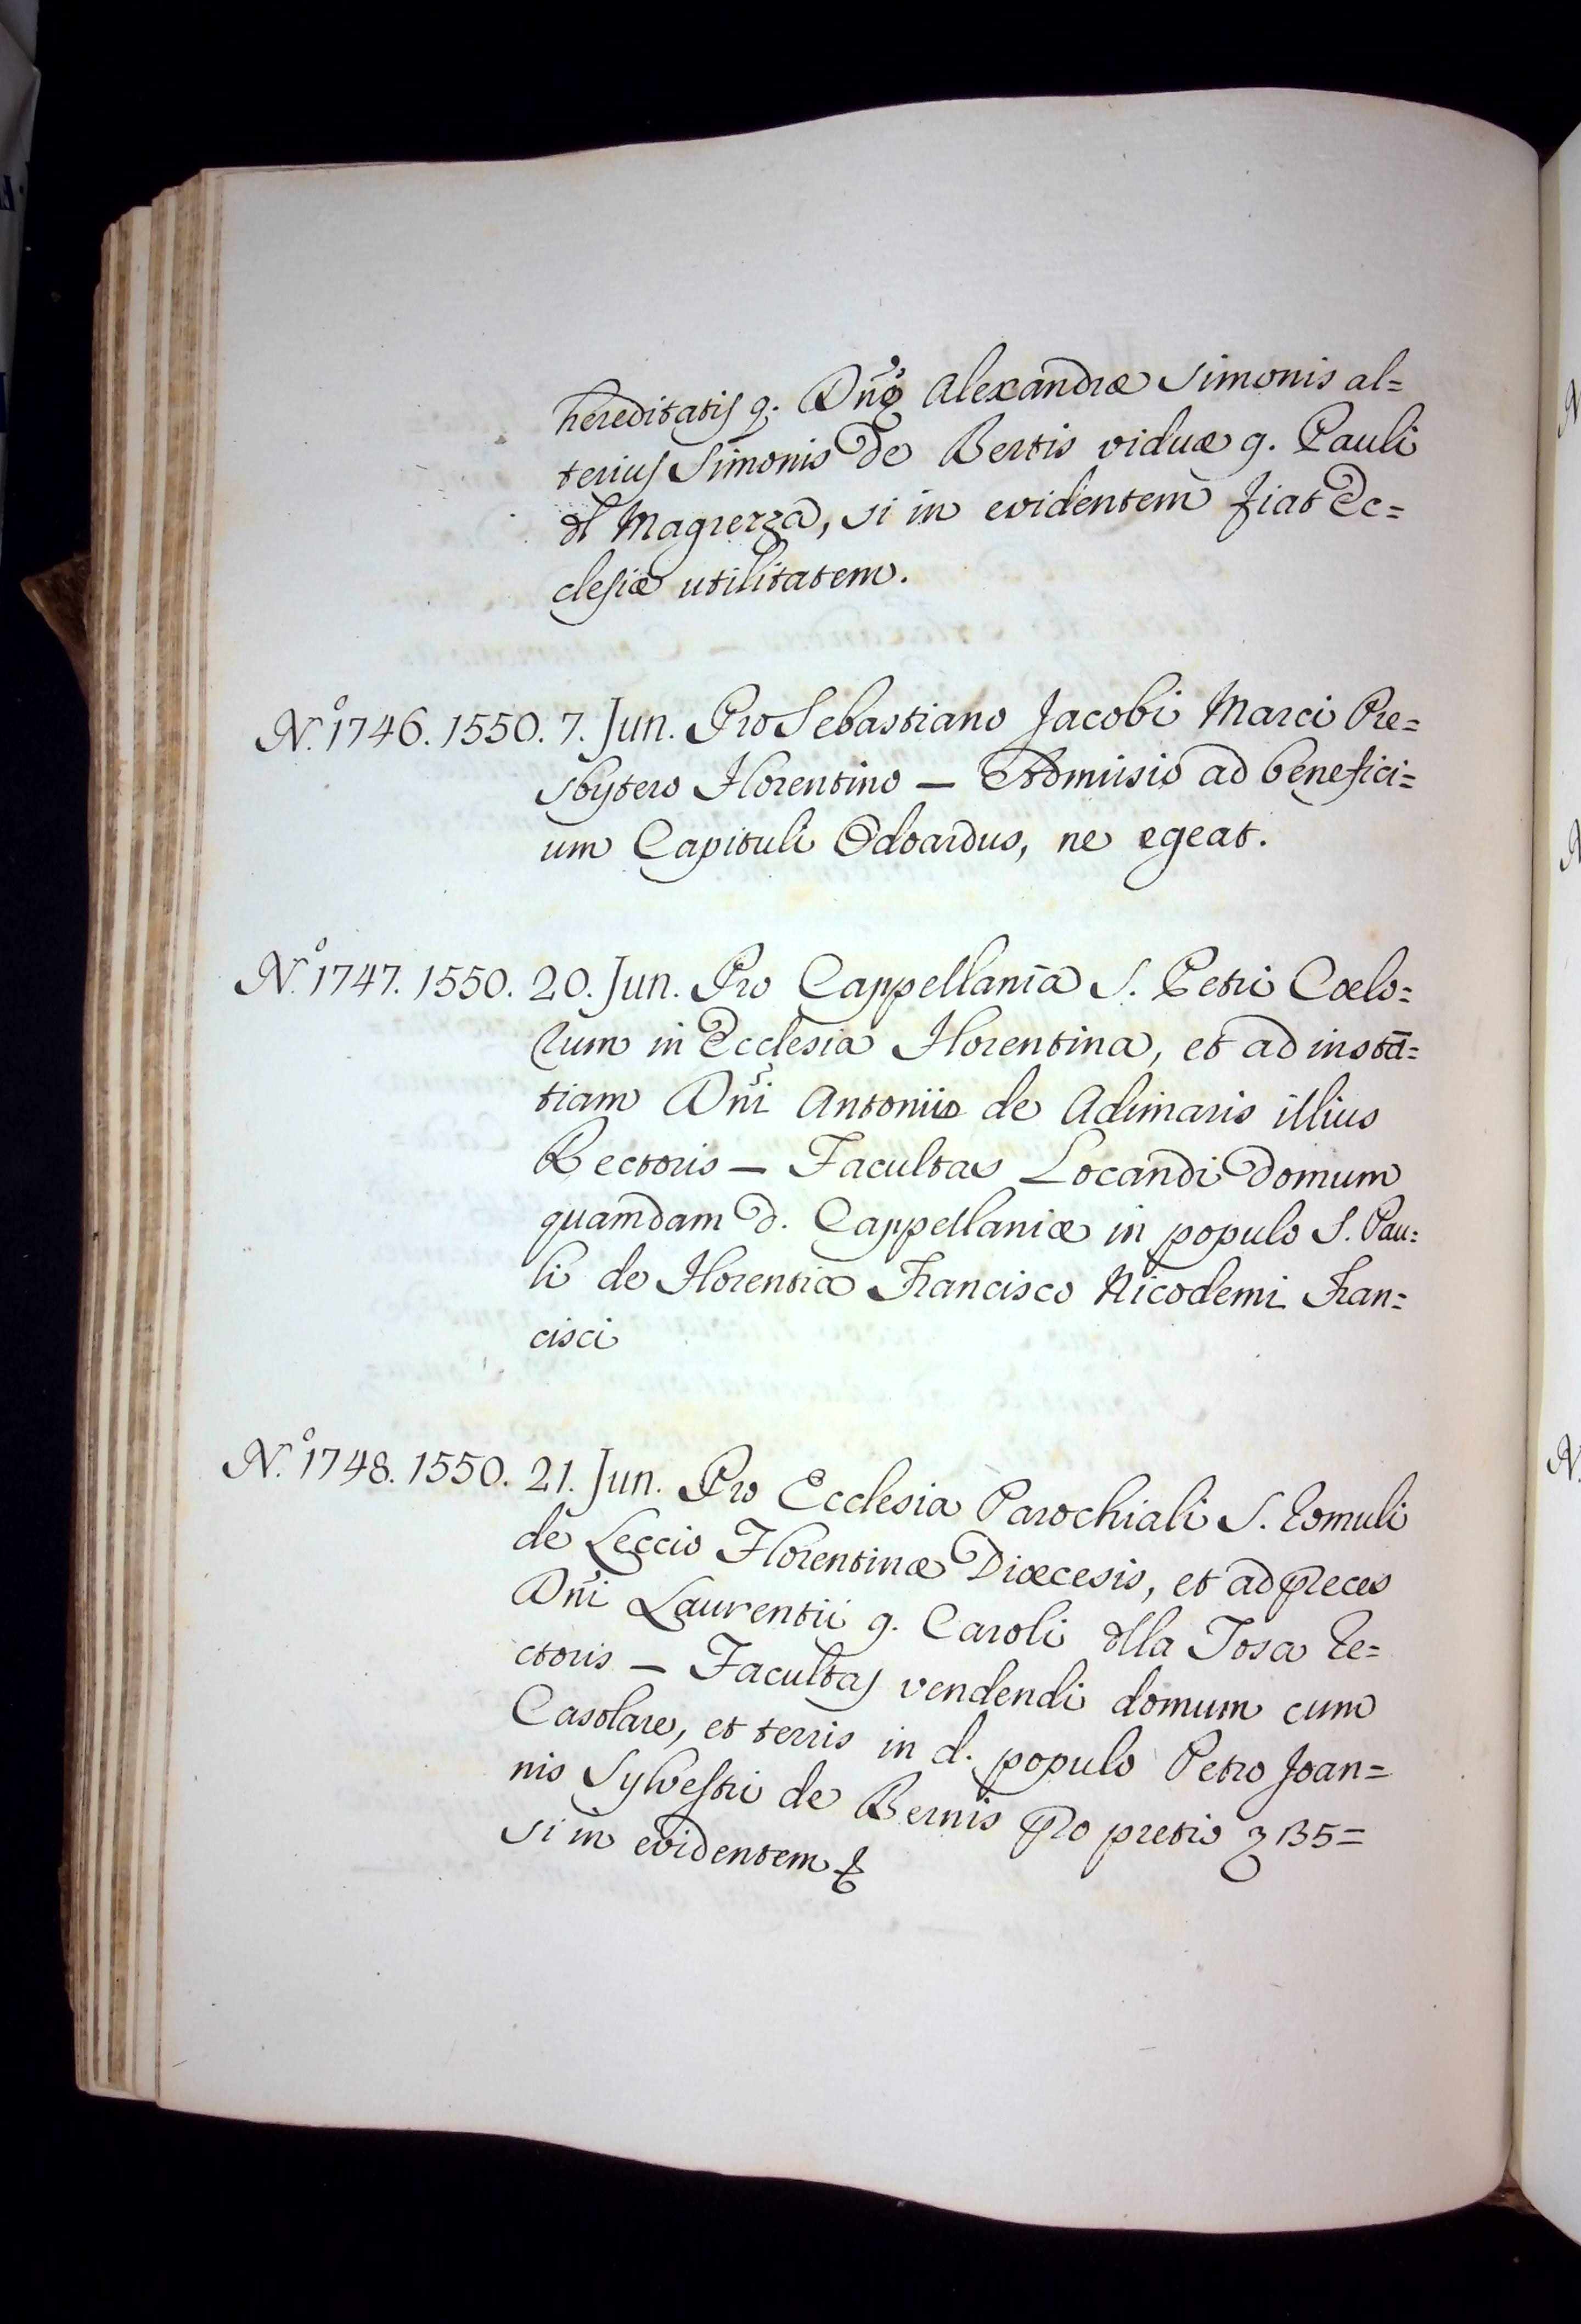 hereditatis q. Dnę Alexandræ Simonis al=
terius Simonis de Bertis viduæ q. Pauli
dl Magrezza, si in evidentem fiat Ec=
clesiæ utilitatem.
N.º 1746. 1550. 7. Jun. Pro Sebastiano Jacobi Marci Pre=
sbytero Florentino — Admissio ad benefici=
um Capituli Odoardus, ne egeat.
N.º 1747. 1550. 20. Jun. Pro Cappellania S. Petri Coelo=
rum in Ecclesia Florentina, et ad instā=
tiam Dñi Antonii de Adimaris illius
Rectoris — Facultas Locandi domum
quamdam d. Cappellaniæ in populo S. Pau=
li de Florentia Francisco Nicodemi Fran=
cisci
N.º 1748. 1550. 21. Jun. Pro Ecclesia Parochiali S. Romuli
de Leccio Florentinæ Dioecesis, et ad preces
Dñi Laurentii q. Caroli dlla Tosa Re=
ctoris — Facultas vendendi domum cum
Casolare, et terris in d. populo Petro Joan=
nis Sylvestri de Bernis pro pretio 135=
si in evidentem